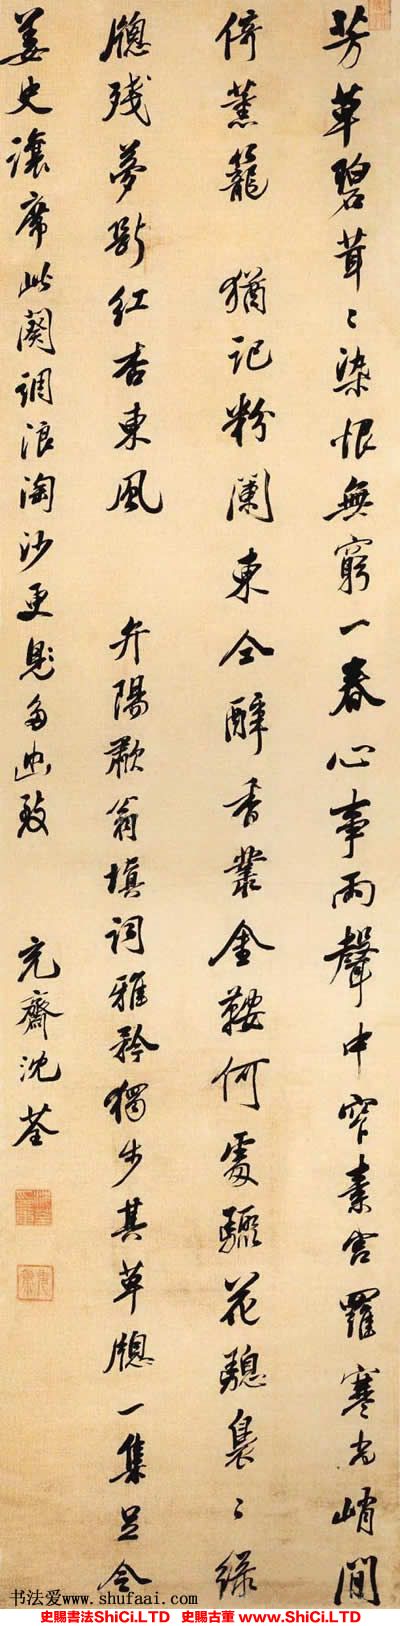 芳草碧茸〻染恨無窮一春心事雨聲中窄素宫羅寒尚峭閒
倚薰籠　猶記粉闌東仝醉香叢金鞍何處驟花驄裊〻綠
牕殘夢斷紅杏東風　弁陽歗翁填詞雅矜獨步其草牕一集足令
姜史讓席此闋調浪淘沙更見多幽致　充齋沈荃
书法爱www.shufaai.com
史賜書法ShiCi.LTD 史賜古董 www.ShiCi.LTD